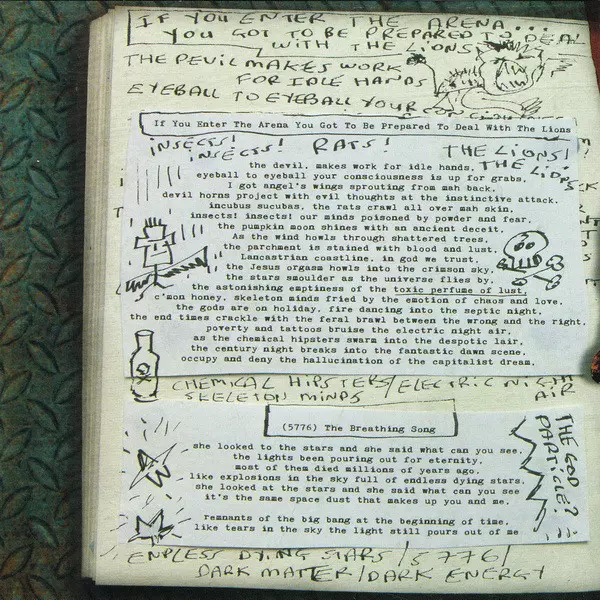 IF YOU ENTER THE ARENA...
YOU GOT TO BE PREPARED TO DEAL
WITH THE LIONS
THE DEVIL MAKES WORK
FOR IDLE HANDS
EYEBALL TO EYEBALL YOUR
If You Enter The Arena You Got To Be Prepared To Deal With The Lions
INSECTS! RATS! THE LIONS!
INSECTS! THE LIONS
the devil, makes work for idle hands,
eyeball to eyeball your consciousness is up for grabs,
I got angel's wings sprouting from mah back,
devil horns project with evil thoughts at the instinctive attack.
incubus sucubas, the rats crawl all over mah skin,
insects! insects! our minds poisoned by powder and fear,
the pumpkin moon shines with an ancient deceit,
As the wind howls through shattered trees,
the parchment is stained with blood and lust,
Lancastrian coastline, in god we trust,
the Jesus orgasm howls into the crimson sky,
the stars smoulder as the universe flies by,
the astonishing emptiness of the toxic perfume of lust,
c'mon honey, skeleton minds fried by the emotion of chaos and love,
the gods are on holiday, fire dancing into the septic night,
the end times crackle with the feral brawl between the wrong and the right,
poverty and tattoos bruise the electric night air,
as the chemical hipsters swarm into the despotic lair,
the century night breaks into the fantastic dawn scene,
occupy and deny the hallucination of the capitalist dream.
CHEMICAL HIPSTERS/ELECTRIC NIGHT
AIR
SKELETON MINDS
(5776) The Breathing Song
she looked to the stars and she said what can you see,
the lights been pouring out for eternity,
most of them died millions of years ago,
like explosions in the sky full of endless dying stars,
she looked at the stars and she said what can you see
it's the same space dust that makes up you and me.
remnants of the big bang at the beginning of time,
like tears in the sky the light still pours out of me
THE GOD
PARTICLE?
ENDLESS DYING STARS/5776/
DARK MATTER/DARK ENERGY